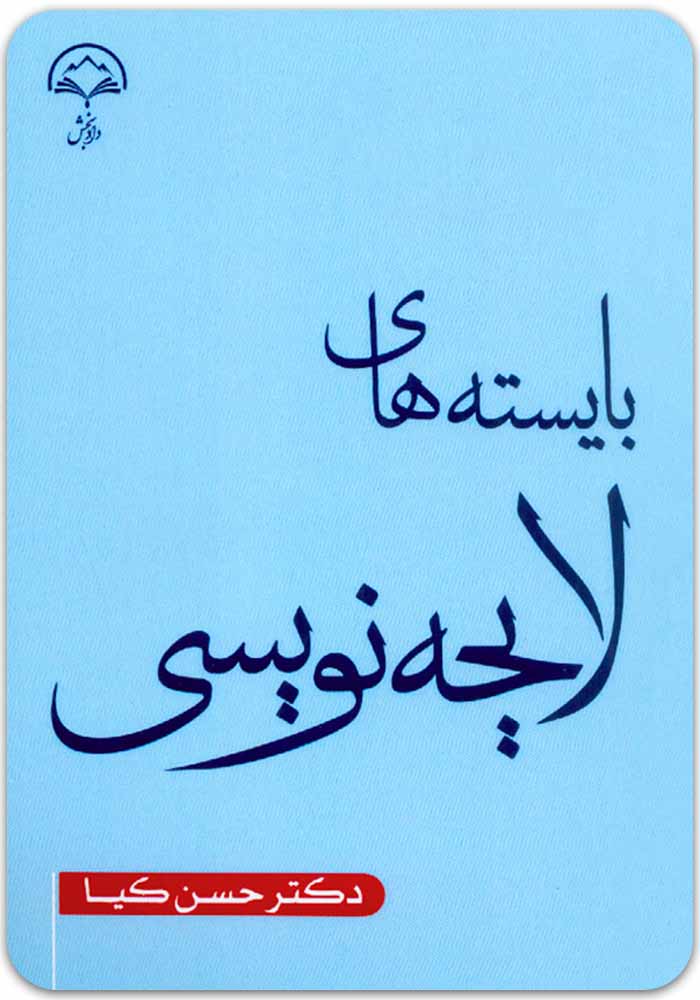 دادبخش
بایسته های
لایحه نویسی
دکتر حسن کیا